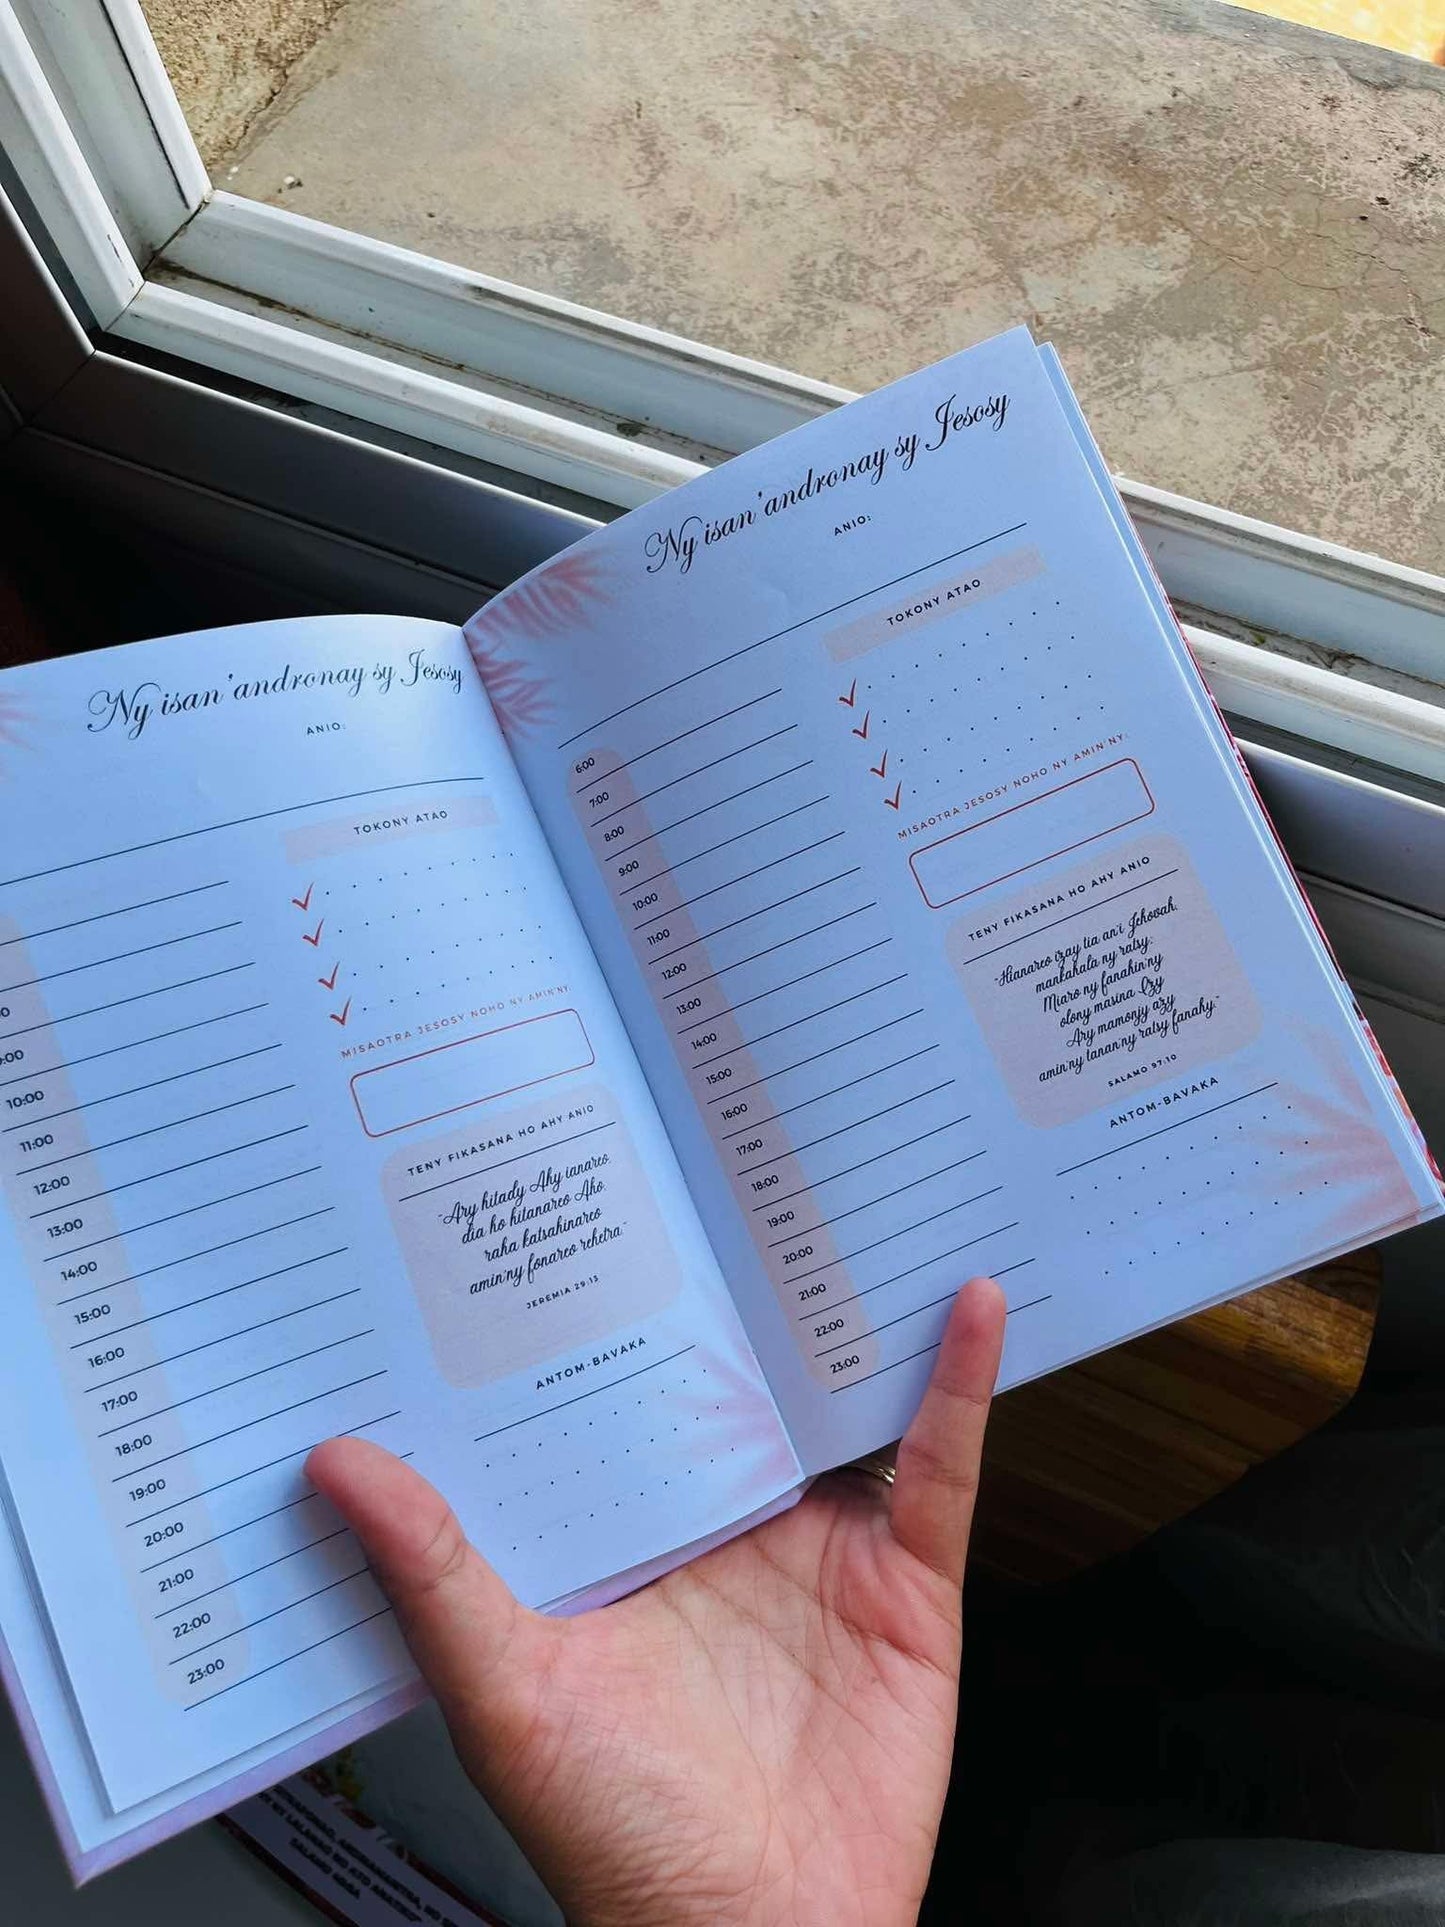 Ny isan'andronay sy Jesosy
ANIO:
TOKONY ATAO
10:00
11:00
12:00
13:00
14:00
15:00
16:00
17:00
18:00
19:00
20:00
21:00
22:00
23:00
MISAOTRA JESOSY NOHO NY AMIN'NY:
TENY FIKASANA HO AHY ANIO
"Ary hitady Ahy ianareo,
dia ho hitanareo Aho,
raha katsahinareo
amin'ny fonareo rehetra."
JEREMIA 29:13
ANTOM-BAVAKA
Ny isan'andronay sy Jesosy
ANIO:
TOKONY ATAO
6:00
7:00
8:00
9:00
10:00
11:00
12:00
13:00
14:00
15:00
16:00
17:00
18:00
19:00
20:00
21:00
22:00
23:00
MISAOTRA JESOSY NOHO NY AMIN'NY:
TENY FIKASANA HO AHY ANIO
"Hianareo izay tia an'i Jehovah,
mankahala ny ratsy;
Miaro ny fanahin'ny
olony masina Izy
Ary mamonjy azy
amin'ny tanan'ny ratsy fanahy."
SALAMO 97:10
ANTOM-BAVAKA